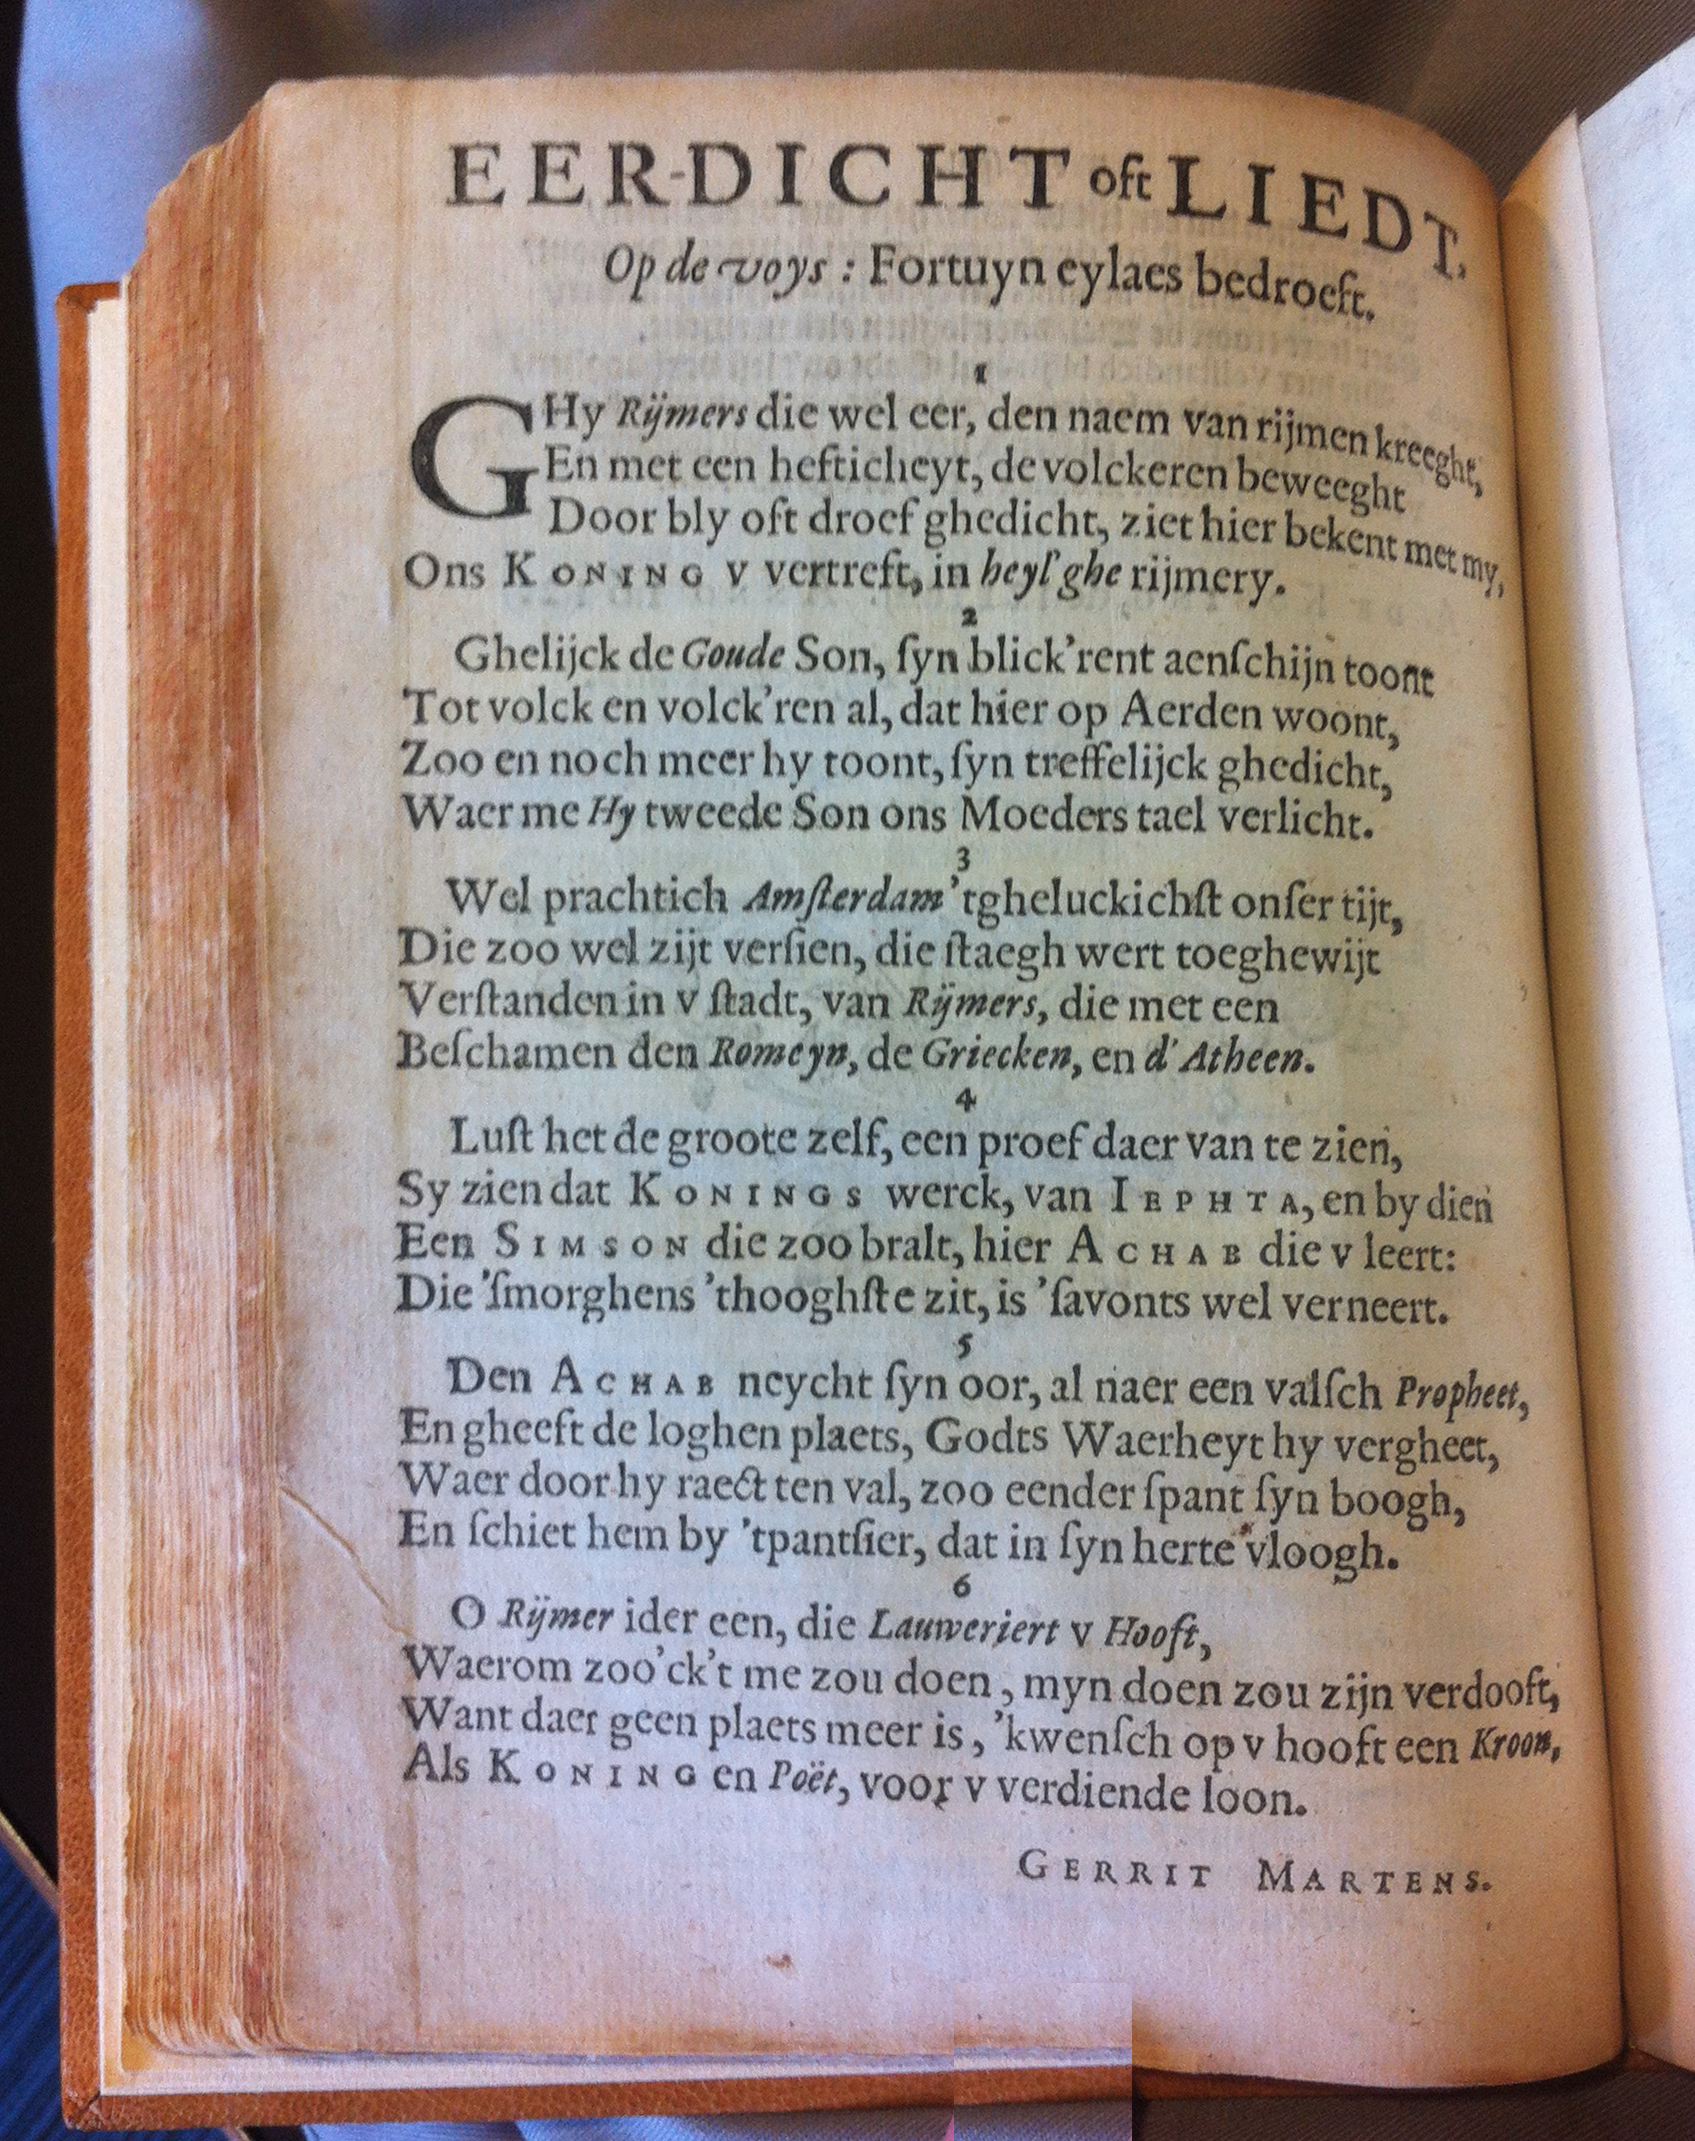 EER-DICHT oft LIEDT.
Op de voys : Fortuyn eylaes bedroeft.
1
GHy Rijmers die wel eer, den naem van rijmen kreeght,
En met een hefticheyt, de volckeren beweeght
Door bly oft droef ghedicht, ziet hier bekent met my,
Ons KONING v vertreft, in heyl'ghe rijmery.
2
Ghelijck de Goude Son, ſyn blick'rent aenſchijn toont
Tot volck en volck'ren al, dat hier op Aerden woont,
Zoo en noch meer hy toont, ſyn treffelijck ghedicht,
Waer me Hy tweede Son ons Moeders tael verlicht.
3
Wel prachtich Amſterdam 'tgheluckichſt onſer tijt,
Die zoo wel zijt verſien, die ſtaegh wert toeghewijt
Verſtanden in v ſtadt, van Rijmers, die met een
Beſchamen den Romeyn, de Griecken, en d'Atheen.
4
Luſt het de groote zelf, een proef daer van te zien,
Sy zien dat KONINGS werck, van IEPHTA, en by dien
Een SIMSON die zoo bralt, hier ACHAB die v leert:
Die 'ſmorghens 'thooghſte zit, is 'ſavonts wel verneert.
5
Den ACHAB neycht ſyn oor, al naer een valſch Propheet,
En gheeft de loghen plaets, Godts Waerheyt hy vergheet,
Waer door hy raect ten val, zoo eender ſpant ſyn boogh,
En ſchiet hem by 'tpantſier, dat in ſyn herte vloogh.
6
O Rijmer ider een, die Lauweriert v Hooft,
Waerom zoo'ck't me zou doen, myn doen zou zijn verdooft,
Want daer geen plaets meer is, 'kwenſch op v hooft een Kroon,
Als KONING en Poët, voor v verdiende loon.
GERRIT MARTENS.